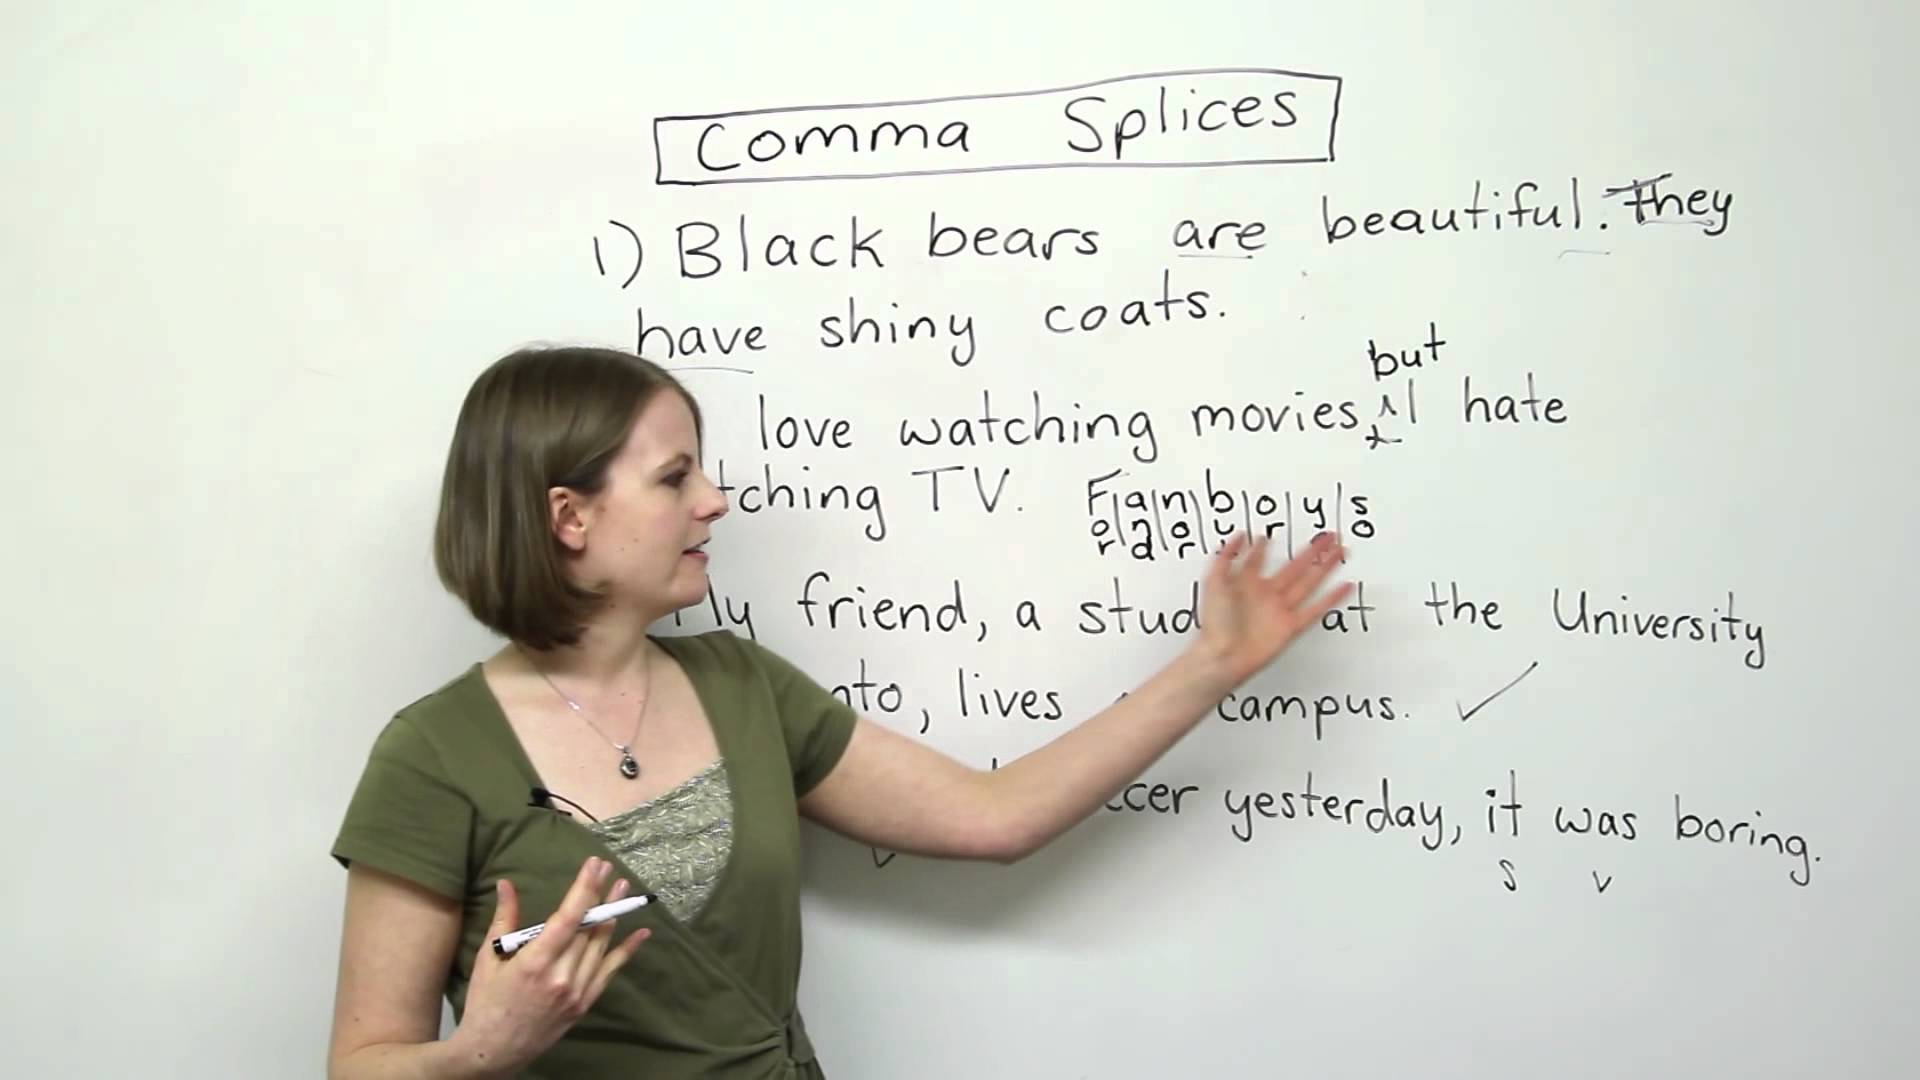 Comma Splices
1) Black bears are beautiful. They
have shiny coats.
but
love watching movies, I hate
tching TV. Fanboys
or nd or u r o
ly friend, a stud at the University
nto, lives campus. ✓
ccer yesterday, it was boring.
S V